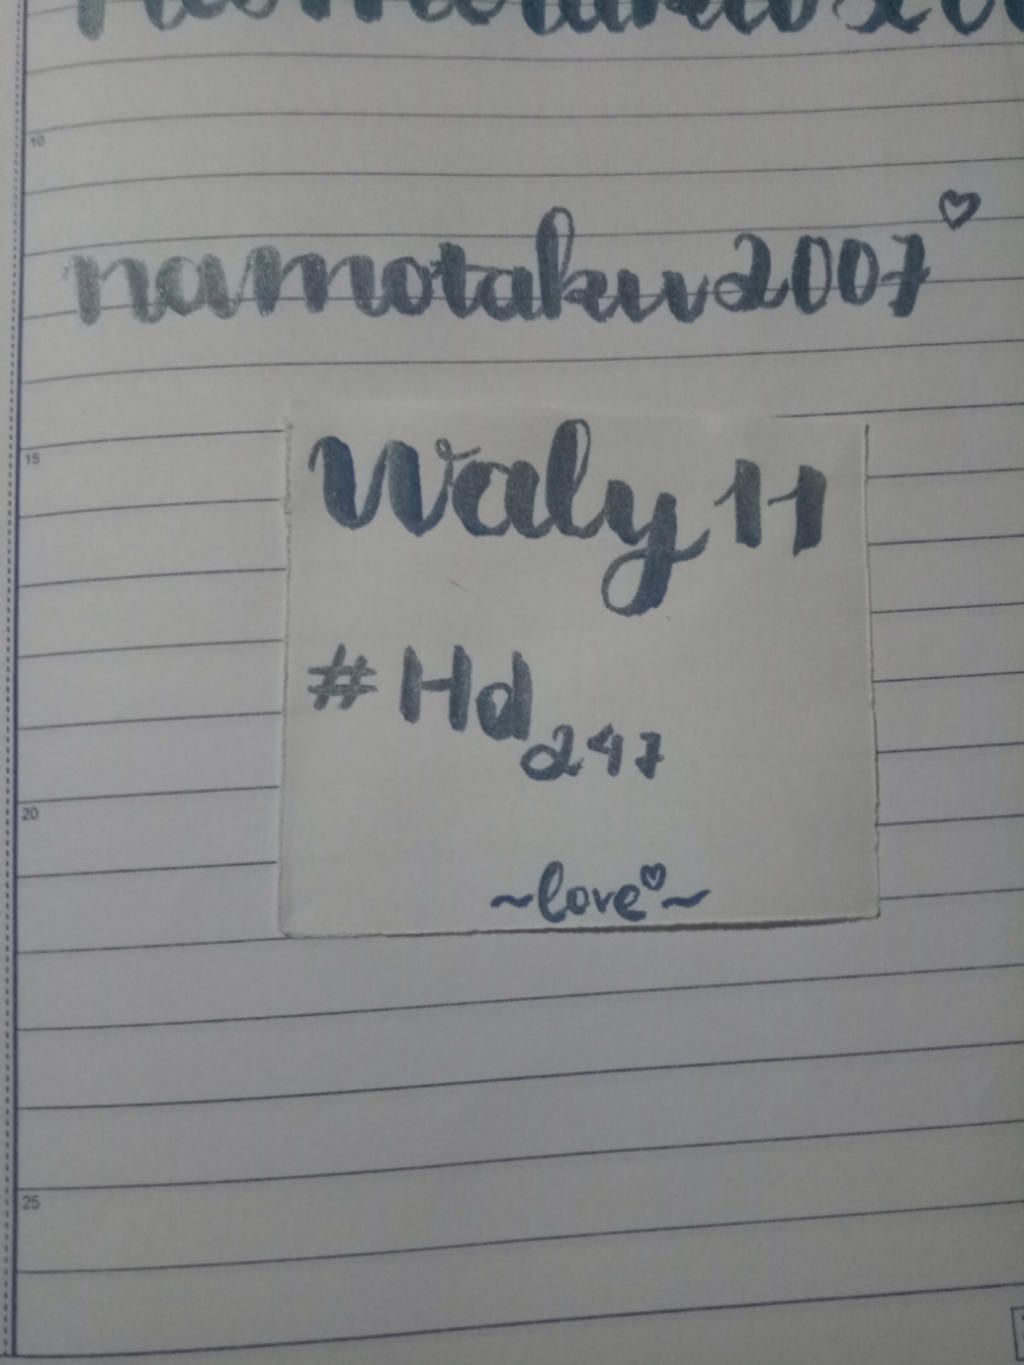 10
namotaku2007♡
15
Waly 11
#Hd247
20
~love♡~
25